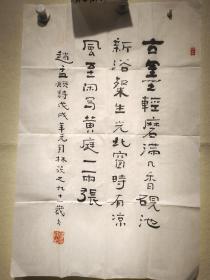 古墨輕磨滿几香硯池
新浴粲生光北窗時有凉
風至闲写黄庭一兩張
趙孟頫詩戊戌年元月林之九十一歲